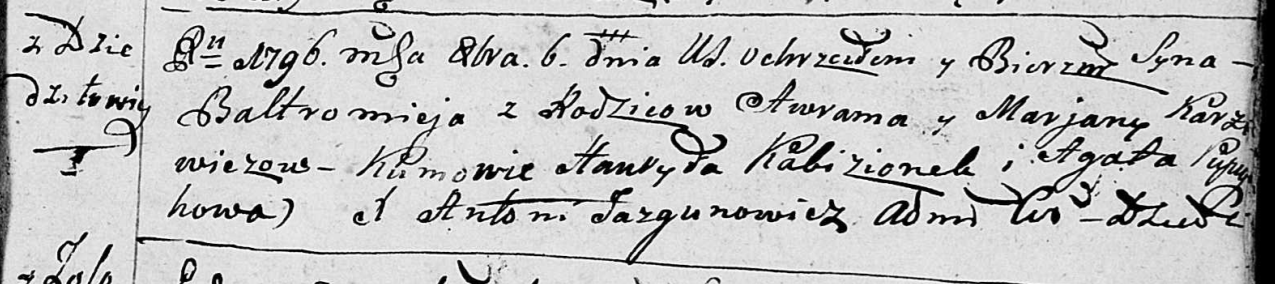 z Dzie
dziłowicz
1
Ru 1796. msca 8bra. 6. dnia Uś. ochrzciłem y Bierzm Syna –
Baltromieja z Rodzicow Awrama y Marjany Karz
wiczow – Kumowie Hauryła Kabizionek i Agata
howa) X Antoni Jazgunowicz Adm
z Zolo